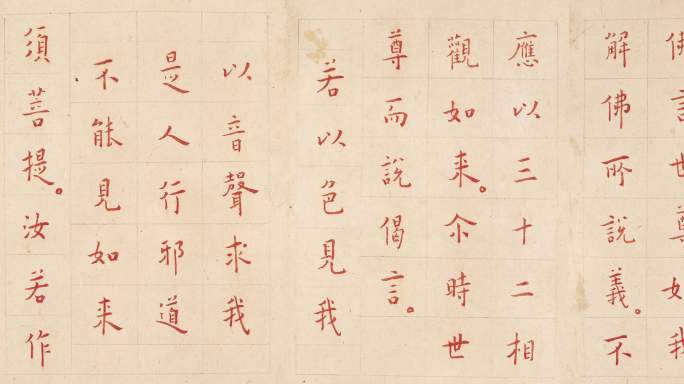 佛言世尊如我
解佛所說義。不
應以三十二相
觀如来。尒時世
尊而說偈言。
若以色見我
以音聲求我
是人行邪道
不能見如来
須菩提。汝若作